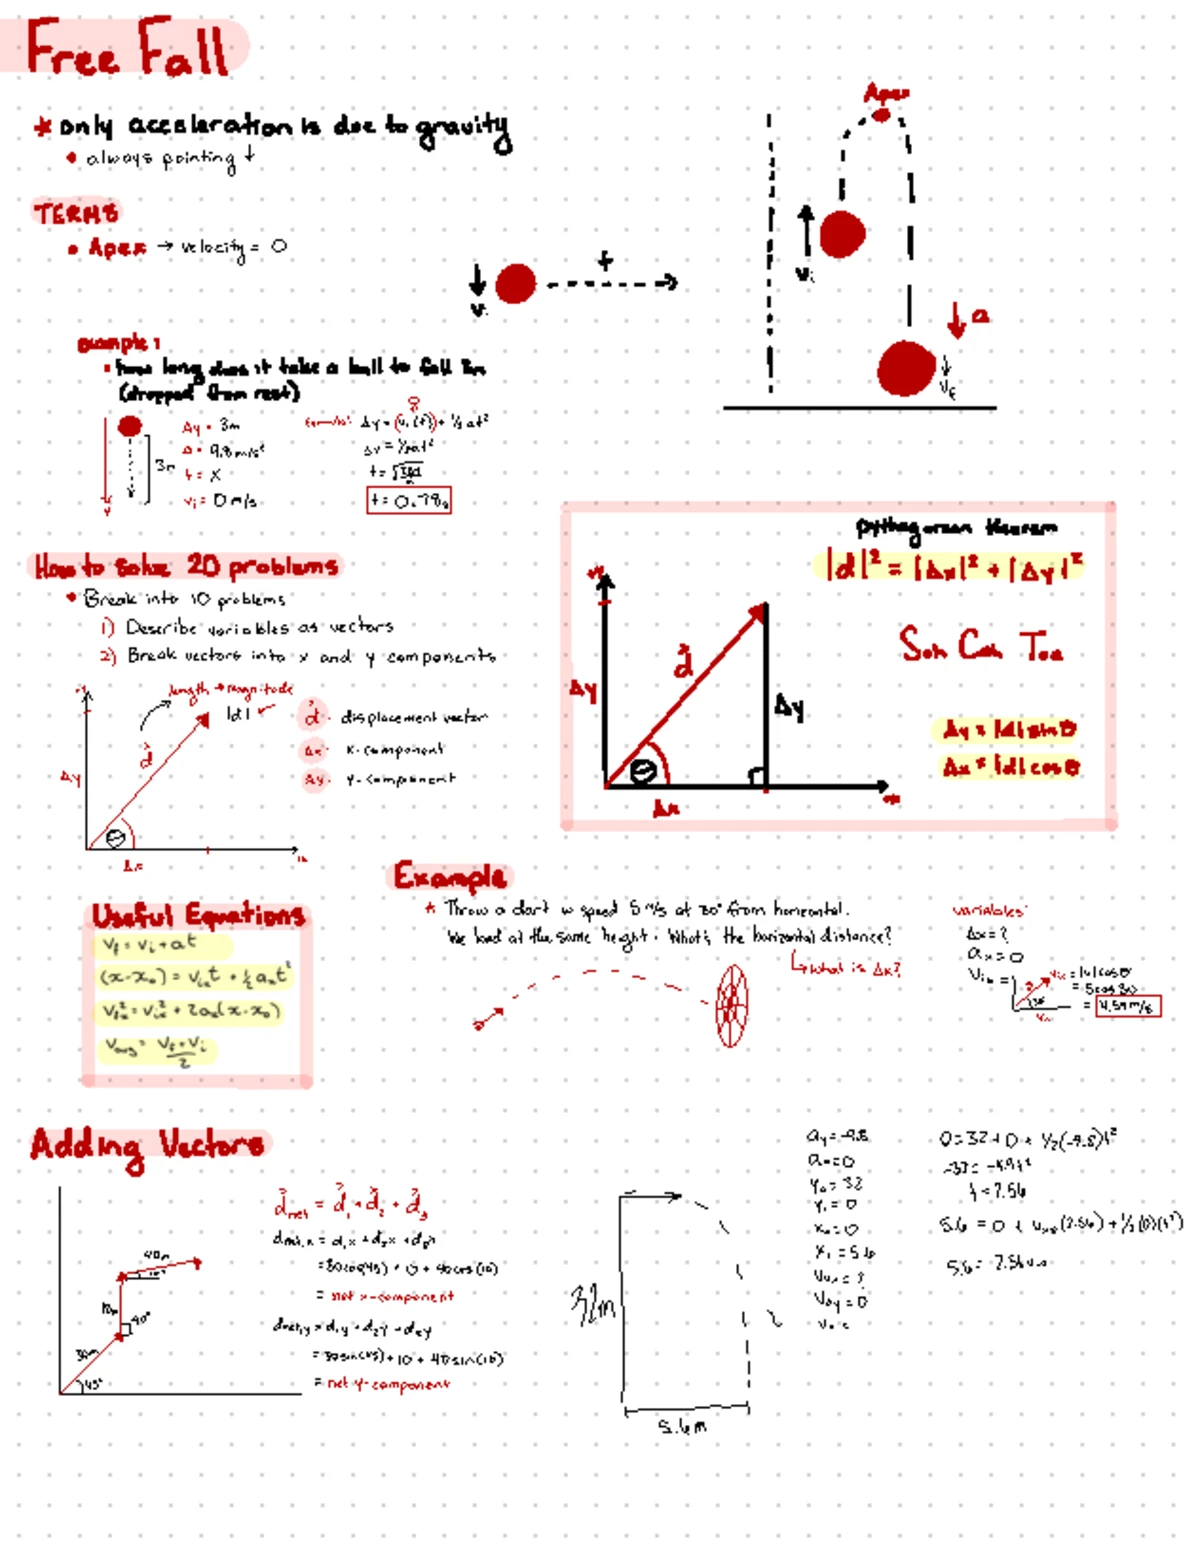 Free Fall
* only acceleration is due to gravity
• always pointing ↓
TERMS
• Apex → velocity = 0
Apex
t
a
example 1
• how long does it take a ball to fall 3m
(dropped from rest)
Δy = 3m
a = 9.8 m/s²
t = x
vi = 0 m/s
3m
Δy = (vi(t)) + ½at²
Δy = ½at²
t = 0.78s
How to solve 2D problems
• Break into 1D problems
1) Describe variables as vectors
2) Break vectors into x and y components
length → magnitude
|d|
d
Δy
θ
Δx
d - displacement vector
Δx - x-component
Δy - y-component
pythagorean theorem
|d|² = |Δx|² + |Δy|²
Soh Cah Toa
Δy = |d| sinθ
Δx = |d| cosθ
Δy
d
Δy
θ
Δx
Useful Equations
vf = vi + at
(x-x₀) = vixt + ½axt²
vfx² = vix² + 2ax(x-x₀)
vavg = vf+vi/2
Example
* Throw a dart w speed 5 m/s at 30° from horizontal.
We land at the same height. What's the horizontal distance?
↳ what is Δx?
variables:
Δx = ?
ax = 0
Vix =
vix = |v|cosθ
= 5cos30
Adding Vectors
dnet = d₁ + d₂ + d₃
dnet,x = d₁x + d₂x + d₃x
= net x-component
dnet,y = d₁y + d₂y + d₃y
= 30sin(45) + 10 + 40sin(10)
= net y-component
40m
10m
90°
30m
45°
32m
5.6m
ay = -9.8
ax = 0
y₀ = 32
y₁ = 0
x₀ = 0
x₁ = 5.6
V₀x = ?
V₀y = 0
0 = 32 + 0 + ½(-9.8)t²
-32 = -4.9t²
t = 2.56
5.6 = 0 + v₀x(2.56) + ½(0)(t²)
5.6 = 2.56v₀x